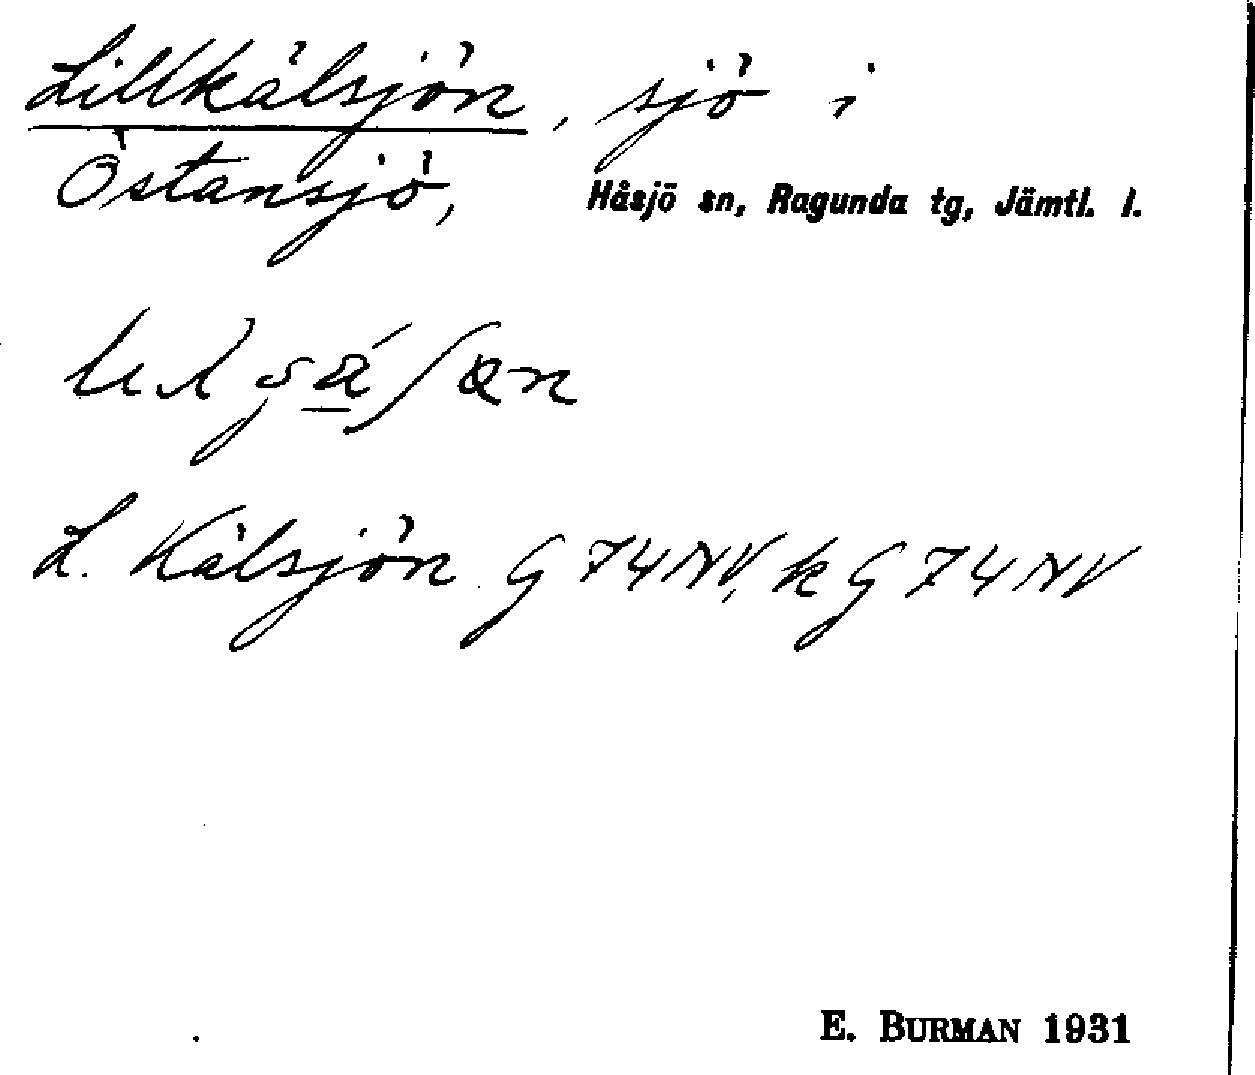 Lillkälsjön, sjö i
Östansjö, Håsjö sn, Ragunda tg, Jämtl. l.
L. Kälsjön G 74 NV, k G 74 NV
E. BURMAN 1931